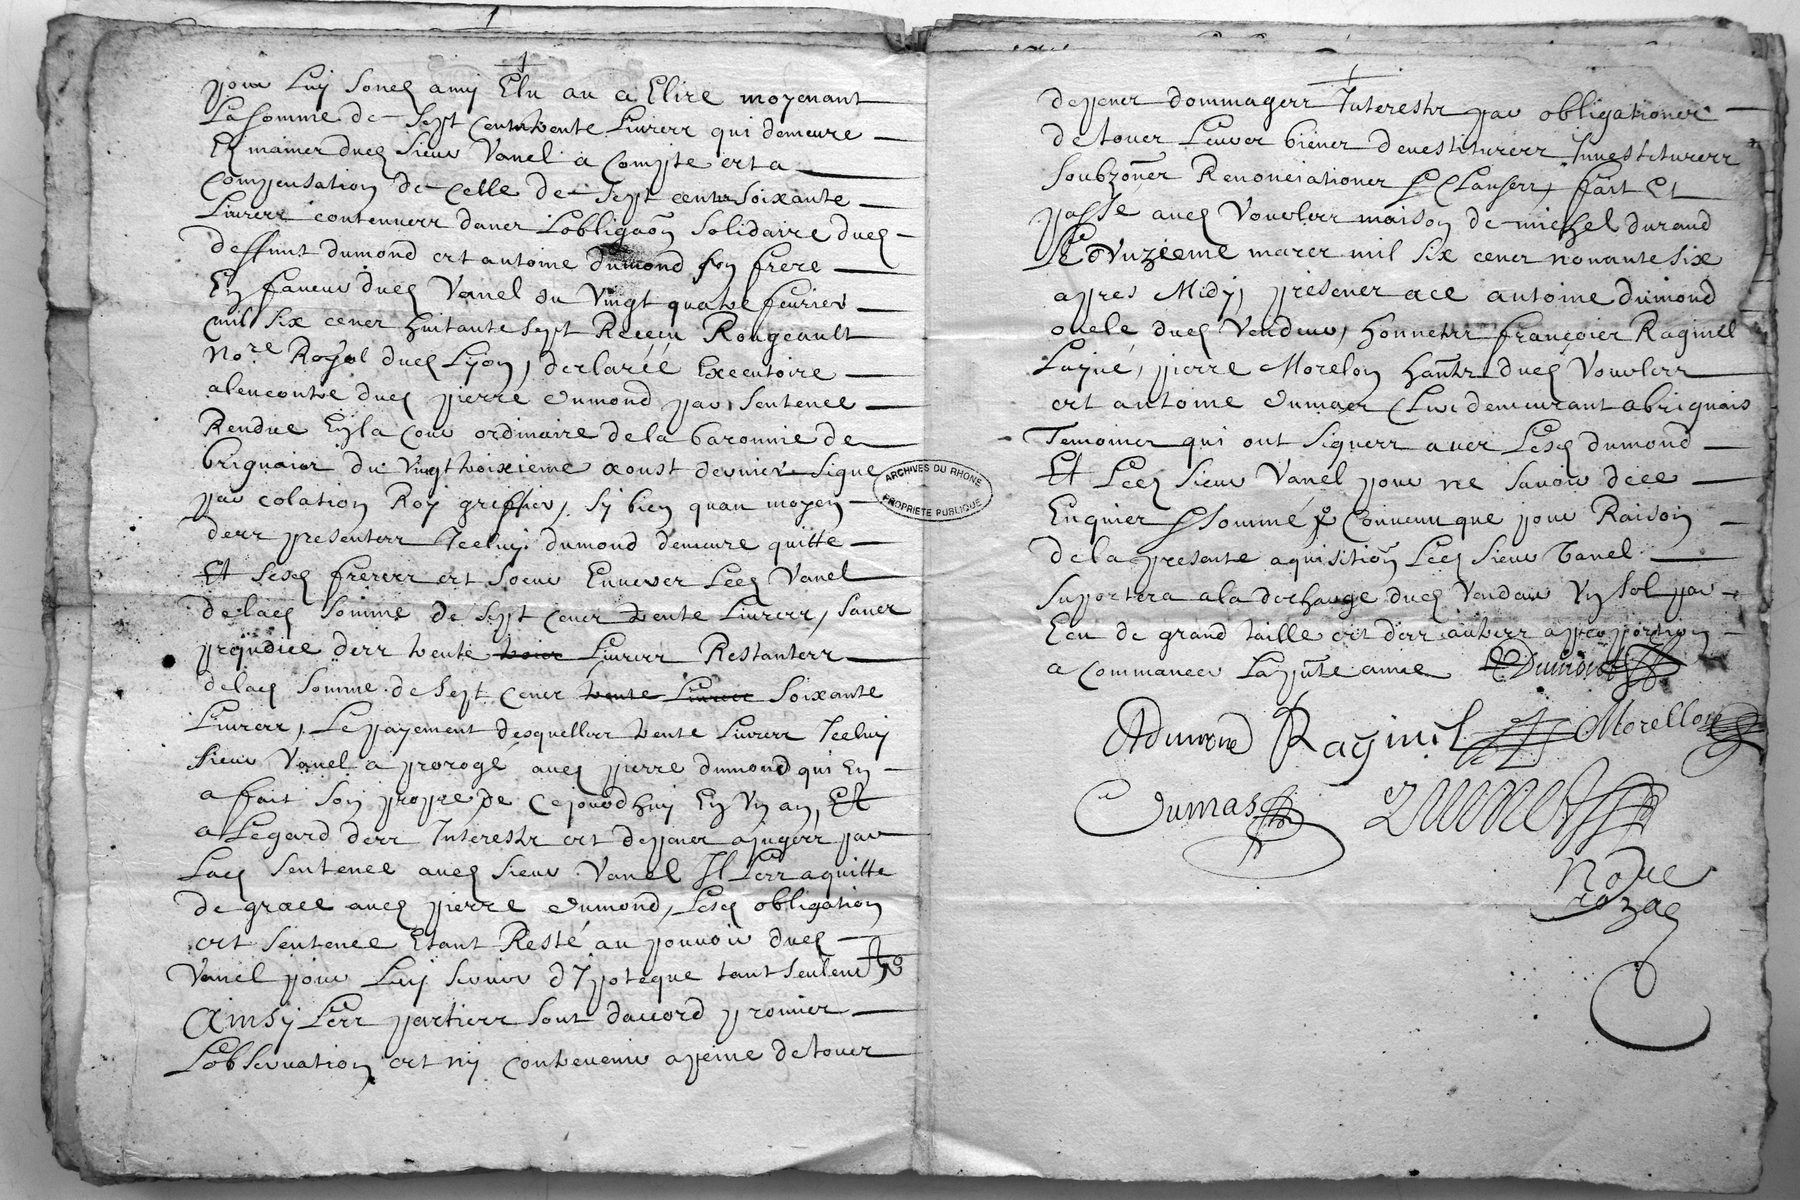 pour Luy Son amy Elu au a Elire moyenant
La somme de Sept cents trente Livres qui demeure
Es mains dud Sieur Vanel a Compte et a
compensation de celle de Sept cents Soixante
Livres contenues dans Lobligaõn Solidaire dud
deffunt dumond et antoine dumond son frere
En faveur dud Vanel du Vingt quatre fevrier
mil Six cens huitante Sept Receu Rougeault
No.re Royal dud Lyon, declaréé Executoire
alencontre dud pierre dumond par Sentence
Rendue En la Cour ordinaire de la baronnie de
brignais du Vingt troixieme aoust dernier Signé
par colation Roy greffier, Sy bien quau moyen
des presentes Iceluy dumond demeure quitte
Et Sesd freres et Soeur Envers Led Vanel
de lad Somme de Sept Cens trente Livres, Sans
prejudice des trente trois Livres Restantes
de lad Somme de Sept Cens trente Livres Soixante
Livres, Le payement desquelles trente Livres Iceluy
Sieur Vanel a prorogé aud pierre dumond qui En
a fait Son propre de Cejourdhuy En Un an, Et
a Legard des Interestz et depens ajugez par
Lad Sentence aud Sieur Vanel Il Les a quitte
de grace aud pierre dumond, Lesd obligation
et Sentence Etant Resté au pouvoir dud
Vanel pour Luy Servir dYpoteque tant Seulemt
Ainsy Les parties Sont daccord promis
Lobservation et ny contrevenir a peine de tous
depens dommages Interestz par obligations
de tous Leurs biens devestitures Investitures
Soubzõns Renonciations & Clauses, fait Et
passé aud Vourles maison de michel durand
Le Unzieme mars mil Six cens nonante Six
apres Midy, presens a ce antoine dumond
oncle dud Vendeur, honnestes françois Raginel
Layné, pierre Morelon hantz dud Vourles
et antoine dumas Clerc demeurant a brignais
Temoins qui ont Signez avec Lesd dumond
Et Led Sieur Vanel pour ne Savoir de ce
Enquier & Sommé & Convenu que pour Raison
de la presente aquisition Led Sieur Vanel
Suportera a la decharge dud Vendeur Un Sol par
Ecu de grand taille et des autres a proportion
a commancer La pnte anné Dumond
ADumond Raginel Morellon
Dumas
No.re
Rozal
ARCHIVES DU RHONE
PROPRIETE PUBLIQUE